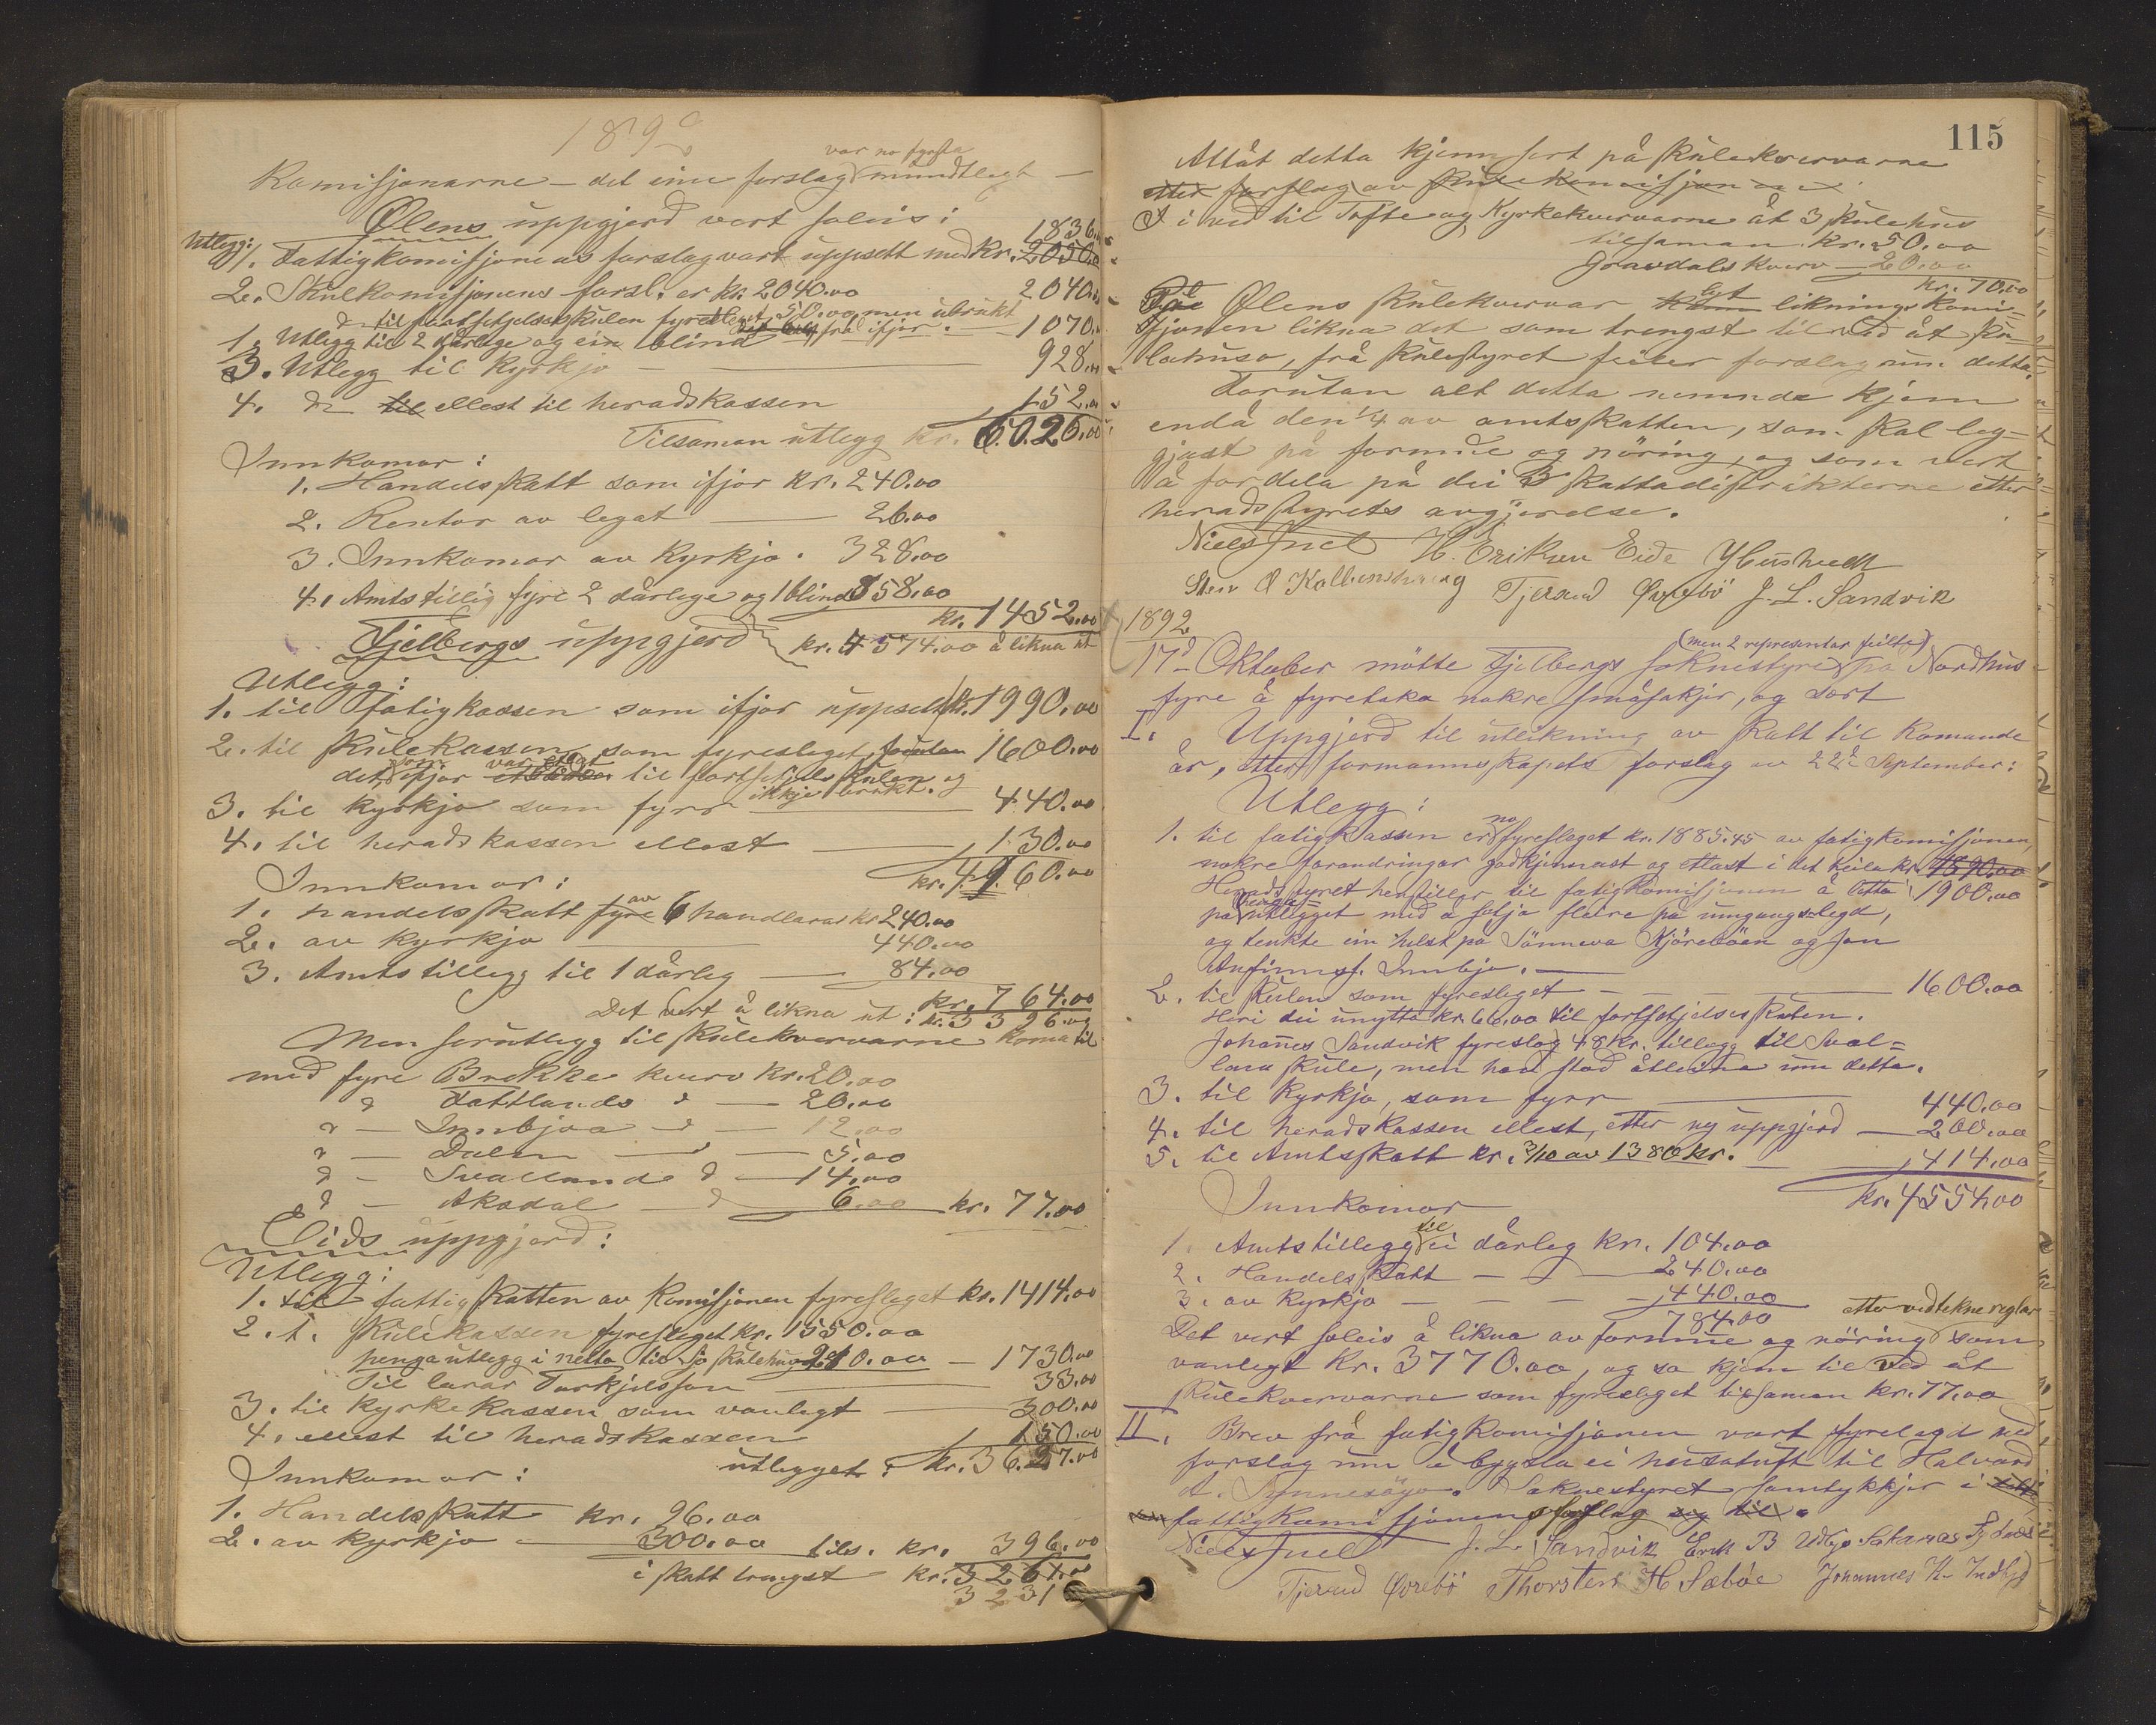 1892
var no fyrsta
Komisjonarne – det eine forslag mundtlegt –
Ølens uppgjerd vert soleis:
Utlegg:
1836.
1. Fattigkomisjonens forslag vart uppsett med kr. 2050.
2. Skulkomisjonens forsl. er kr. 2040.00 2040.
til fortsetjelsesskulen fyreslegt 50.00 men ubrukt
frå ifjor.
1. Utlegg til 2 dårlege og ein blind 1070.
3. Utlegg til kyrkjo 928.
4. do til ellest til heradskassen 152.
Tilsaman utlegg kr. 6.026.00
Innkomor:
1. Handelsskatt som ifjor kr. 240.00
2. Rentor av legat — 26.00
3. Innkomor av kyrkjo. 328.00
4. Amtstillegg fyre 2 dårlege og 1 blind 858.00
kr. 1452.00
Fjelbergs uppgjerd kr. 4574.00 å likna ut
Utlegg:
1. til fatigkassen som ifjor uppsett kr. 1990.00
2. til skulekassen som fyreslegt forutan 1600.00
det som ifjor var utlagt til fortsetjelsskulen og
ikkje brukt.
3. til kyrkjo som fyrr 440.00
4. til heradskassen ellest 130.00
kr. 4160.00
Innkomor:
1. handelsskatt fyre av 6 handlarar kr 240.00
2. av kyrkjo 440.00
3. Amtstillegg til 1 dårleg — 84.00
kr. 764.00
Det vert å likna ut: kr. 3396.00
Men serutlegg til skulekvervarne koma til
med fyre Brekke kverv kr. 20.00
" Tattlands " — 20.00
" — Innbjoa — " — 12.00
" — Dalen — " — 5.00
" — Svallands " — 14.00
" — Aksdal — " 6.00 kr. 77.00
Eids uppgjerd:
Utlegg:
1. til fattigskatten av komisjonen fyreslegt kr. 1414.00
2. t. skulekassen fyreslegt kr. 1550.00
pengautlegg i netto til sjo skulehus 210.00 — 1730.00
Til lærar Torkjelsson 33.00
3. til kyrkekassen som vanlegt 300.00
4. ellest til heradskassen 150.00
utlegget: kr. 3627.00
Innkomor:
1. Handelsskatt kr. 96.00
2. av kyrkjo — 300.00 tils. kr. 396.00
i skatt trengst kr. 3261.00
3231
115
Attåt detta kjem sert på skulekvervarne
etter forslag av skulekomisjonane
I i ved til Tofte og Kyrkekvervarne åt 3 skulehus
tilsaman kr. 50.00
Gravdals kverv — 20.00
kr. 70.00
På Ølens skulekvervar lyt liknings komi-
sjonen likna det som trengst til ved åt sku-
lehuso, frå skulestyret feiler forslag um detta.
Forutan alt detta nemnde kjem
endå den 1/4 av amtsskatten, som skal leg-
gjast på formue og nöring, og som vert
å fordela på dei 3 skattadistrikterne etter
heradsstyrets avgjerdelse.
Niels Juel H. Eriksen Eide Y Hushvedt
Sten O Kolbenshavg Tjerand Øvrebö J. L. Sandvik
1892
(men 2 representar feilte)
17d Oktober mötte Fjelbergs soknestyre på Nordhus
fyre å fyretaka nokre småsakjer, og vart
I. Uppgjerd til utlikning av skatt til komande
år, etter formannskapets forslag av 22de September:
Utlegg:
1. til fatigkassen er no fyreslaget kr. 1885.45 av fatigkomisjonen,
nokre forandringar godkjennast og ettast i det heila kr. 1890.00
Heradsstyret henstiller til fatigkomisjonen å letta 1900.00
på penga= utlegget med å setja fleire på umgangslegd,
og tenkte ein helst på Sönneva Kjöreböen og Jon
Anfinns. Innbjo. —
2. til skulen som fyreslegt — 1600.00
Heri dei unytta kr. 66.00 til fortsetjelsesskulen.
Johanes Sandvik fyreslog 48 kr. tillegg til Sval=
lana skule, men han stod åleina um detta.
3. til kyrkjo, som fyrr 440.00
4. til heradskassen ellest, etter ny uppgjerd — 200.00
5. til Amtsskatt kr. 3/10 av 1380 kr. — 414.00
kr. 4554.00
Innkomor
1. Amtstillegg til ei dårleg kr. 104.00
2. Handelsskatt — — 240.00
3. av kyrkjo — — — 440.00
784.00
etter vedtekne reglar
Det vert soleis å likna av formue og nöring som
vanlegt kr. 3770.00, og so kjem til ved åt
skulekvervarne som fyreslegt tilsaman kr. 77.00
II. Brev frå fatigkomisjonen vart fyrelagd med
forslag um å bygsla ei husatuft til Halvard
A. Tönnesöyo. Soknestyret samtykkjer i
fattigkomisjonens forslag
Niels Juel J. L. Sandvik Erik B Utbjo
Tjerand Øvrebö Thorsten H Sæböe Johannes K. Indbjo